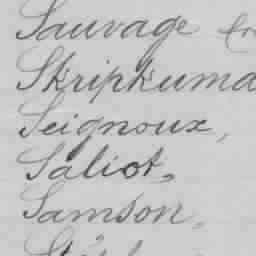 Sauvage
Skripkuma
Seignoux,
Saliot.
Samson.